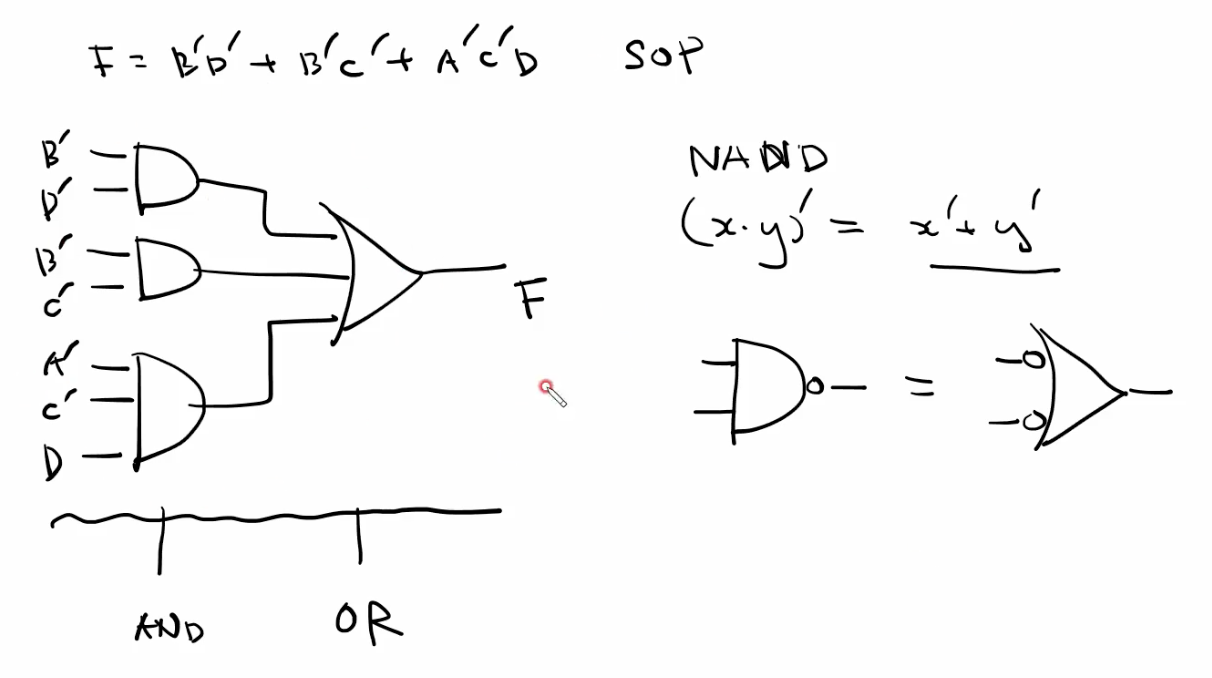 F = B'D' + B'C' + A'C'D SOP
B'
D'
B'
C'
A'
C'
D
F
AND
OR
NAND
(x·y)' = x'+ y'
=